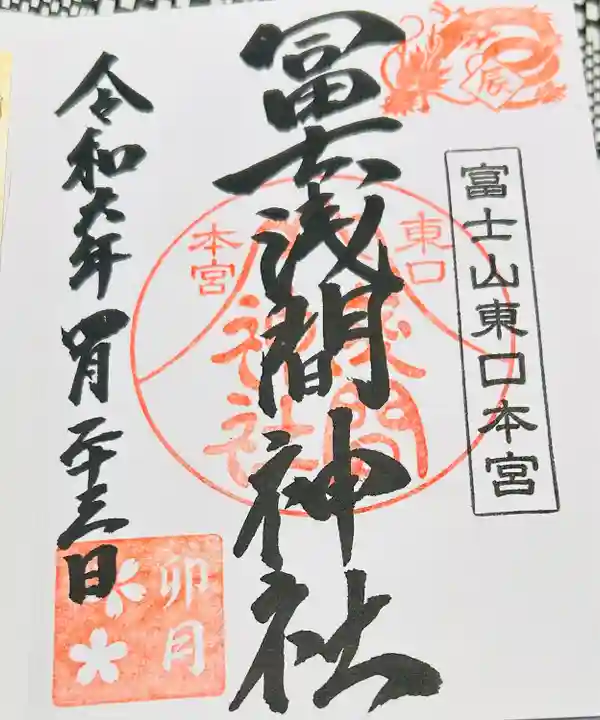 辰
富士山東口本宮
東口
本宮
冨士浅間神社
浅間
神社
令和六年四月二十三日
卯月